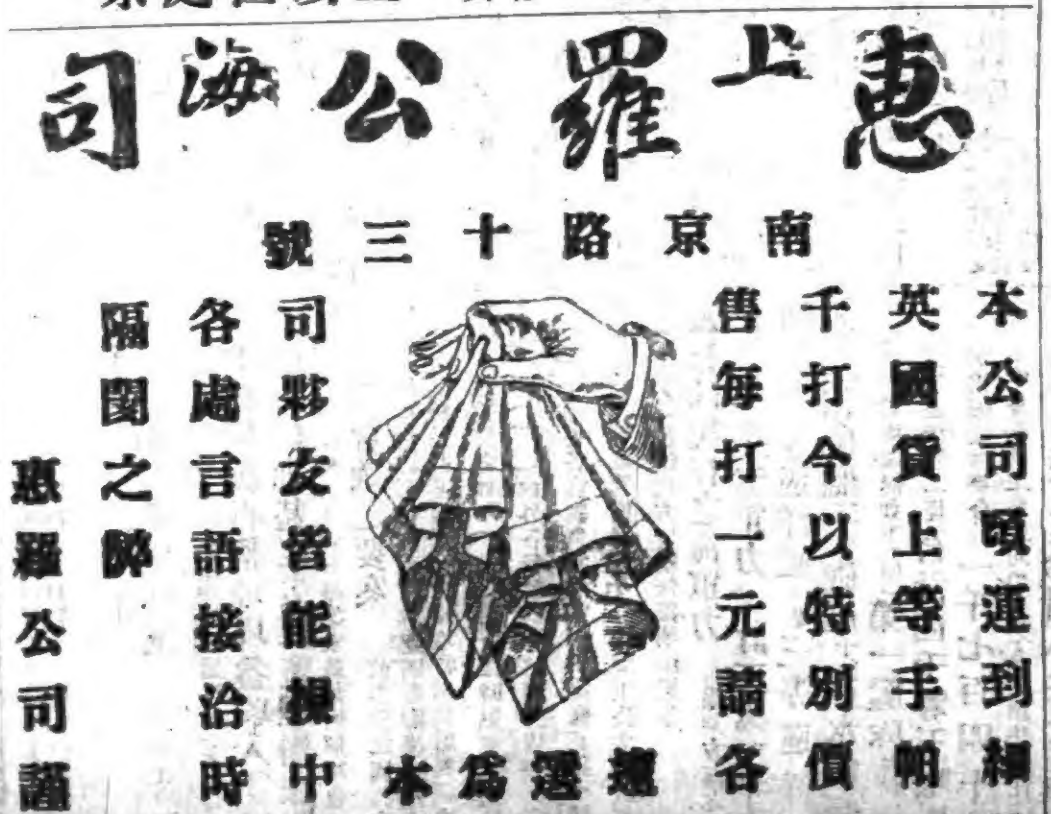 上海
惠羅公司
南京路十三號
本公司頃運到細
英國貨上等手帕
千打今以特別價
售每打一元請各
選爲本
司夥友皆能操中
各處言語接洽時
隔閡之弊
惠羅公司謹